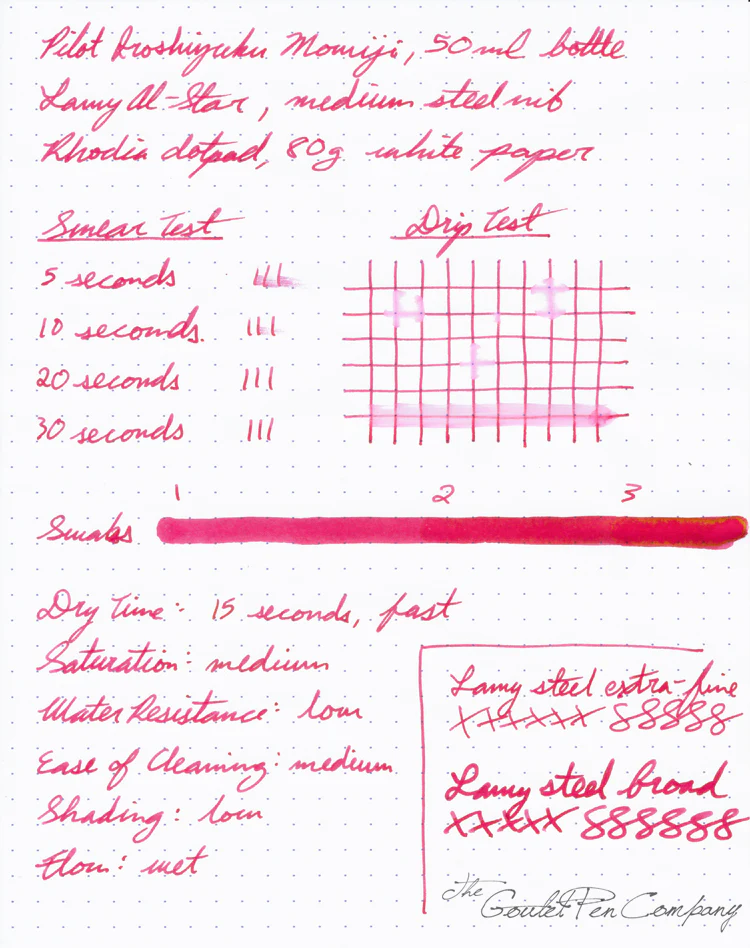 Pilot Iroshizuku Momiji, 50ml bottle
Lamy Al-Star, medium steel nib
Rhodia dotpad, 80g white paper
Smear Test
Drip Test
5 seconds
10 seconds
20 seconds
30 seconds
1 2 3
Swabs
Dry Time: 15 seconds, fast
Saturation: medium
Water Resistance: low
Ease of Cleaning: medium
Shading: low
Flow: wet
Lamy steel extra-fine
xxxxxx 88888
Lamy steel broad
xxxxx 888888
The Goulet Pen Company